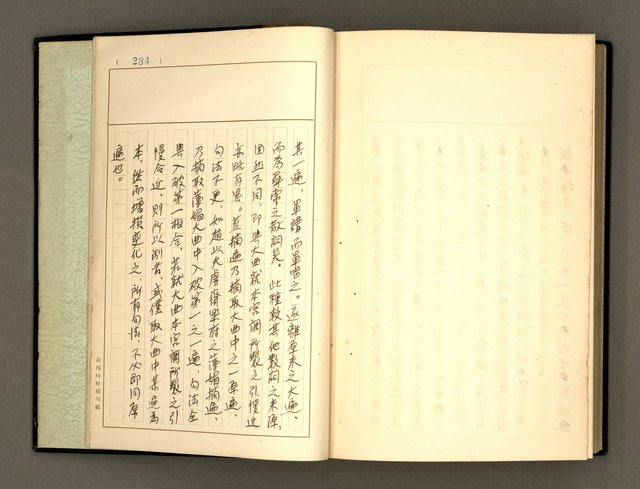 ( 284 )
其一遍，單譜而單唱之。遂離原來之大遍，
而為尋常之散詞矣。此種較其他散詞之來源，
固然不同，即與大曲就本宮調所製之引慢近
亦略有異。蓋摘遍乃摘取大曲中之一原遍，
句法不更，如趙以夫虛齋樂府之薄媚摘遍，
乃摘取薄媚大曲中入破第一之一遍，句法全
與入破第一相合，若就大曲本宮調所製之引
慢令近，則所以制者，或僅取大曲中某遍為
本，從而增損變化之，所有句法，不必即同原
遍也。